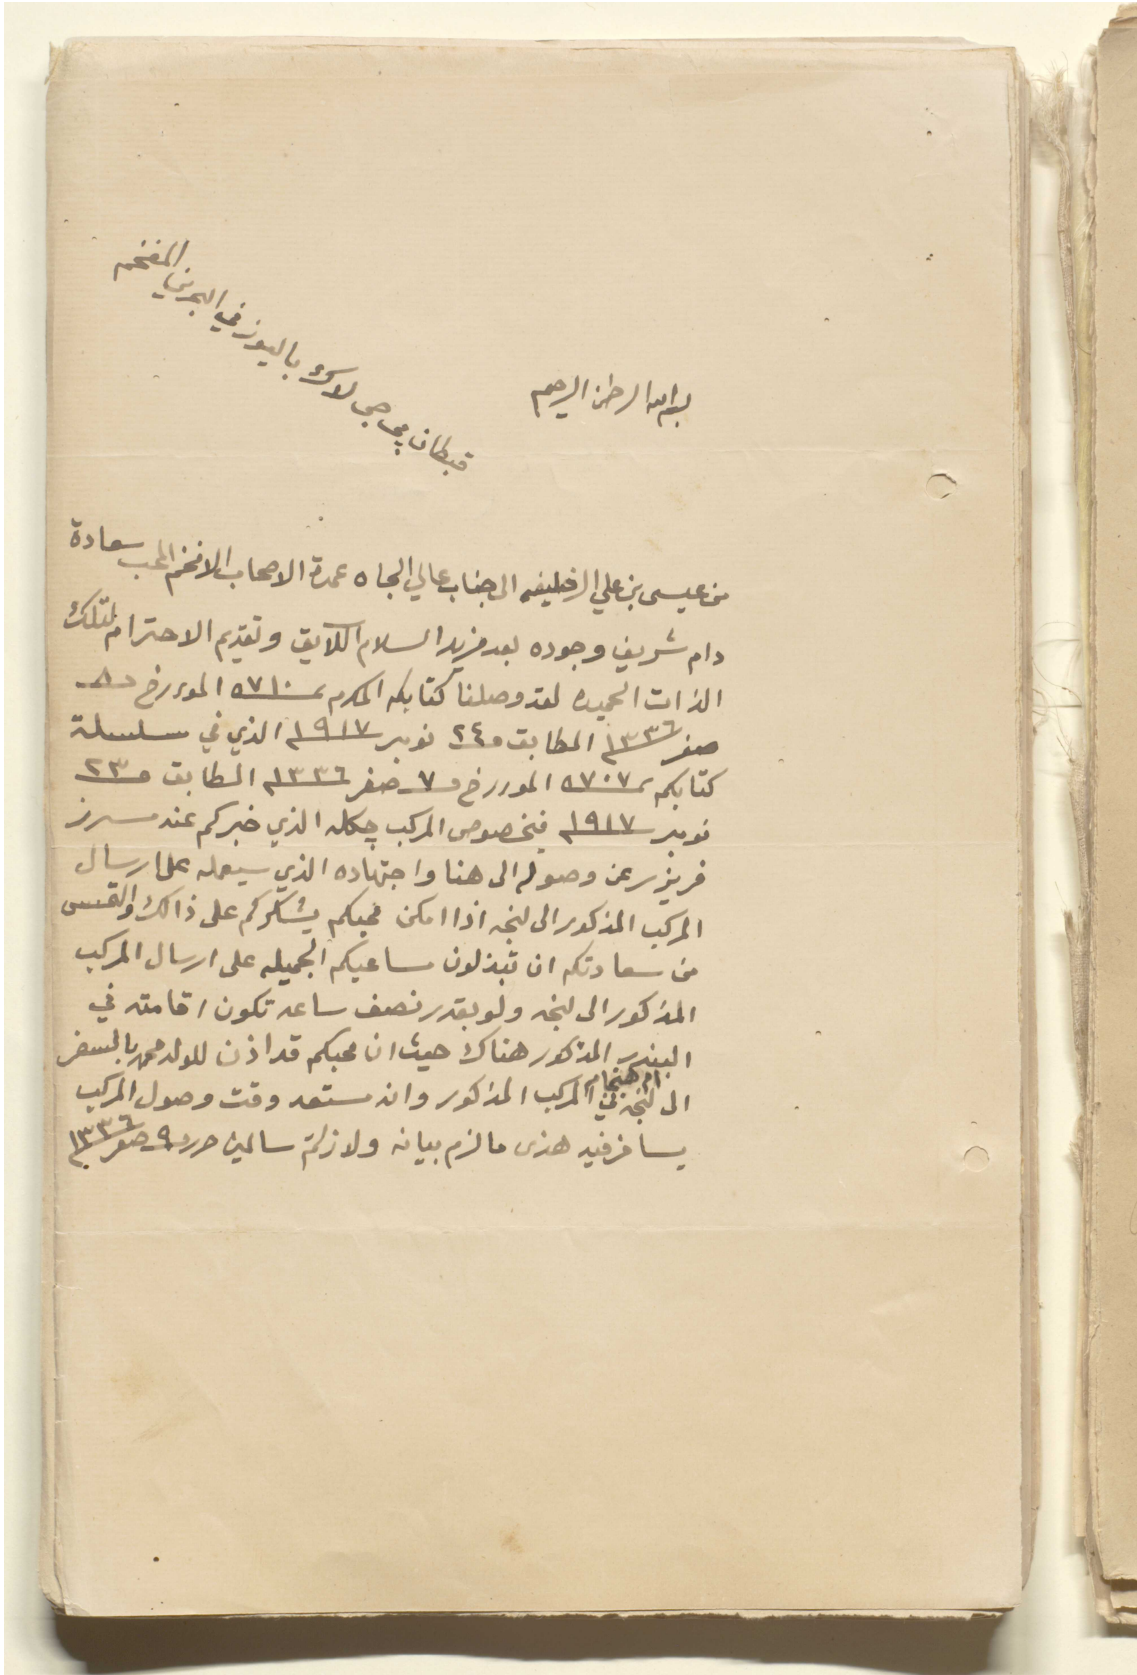 بسم الله الرحمن الرحيم
من عيسى بن علي الخليفه الى جناب عالي الجاه عمدة الاصحاب الافخم المحب سعادة
قبطان پي جي لاك باليوز في البحرين المفخم
دام شريف وجوده بعد مزيد السلام اللايق وتقديم الاحترام لتلك
الذات الحميده لقد وصلنا كتابكم المكرم ٥٧١٠ الموءرخ ٨
صفر ١٣٣٦ المطابق ٢٤ نوبر ١٩١٧ الذي في سلسلة
كتابكم ٥٧٠٧ الموررخ ٧ صفر ١٣٣٦ المطابق ٢٣
نوبر ١٩١٧ فبخصوص المركب چكله الذي خبركم عنه مسرز
فريزر عن وصوله الى هنا واجتهاده الذي سيعمله على ارسال
المركب المذكور الى لنجه اذا امكن محبكم يشكركم على ذالك والتمسى
من سعادتكم ان تبذلون مساعيكم الجميله على ارسال المركب
المذكور الى لنجه ولو بقدر نصف ساعه تكون اقامته في
البندر المذكور هناك حيث ان محبكم قد اذن للولد محمد بالسفر
الى لنجه ام هنجام في المركب المذكور وانه مستعد وقت وصول المركب
يسافر فيه هذى ما لزم بيانه ولازلتم سالمين حرر ٩ صفر ١٣٣٦